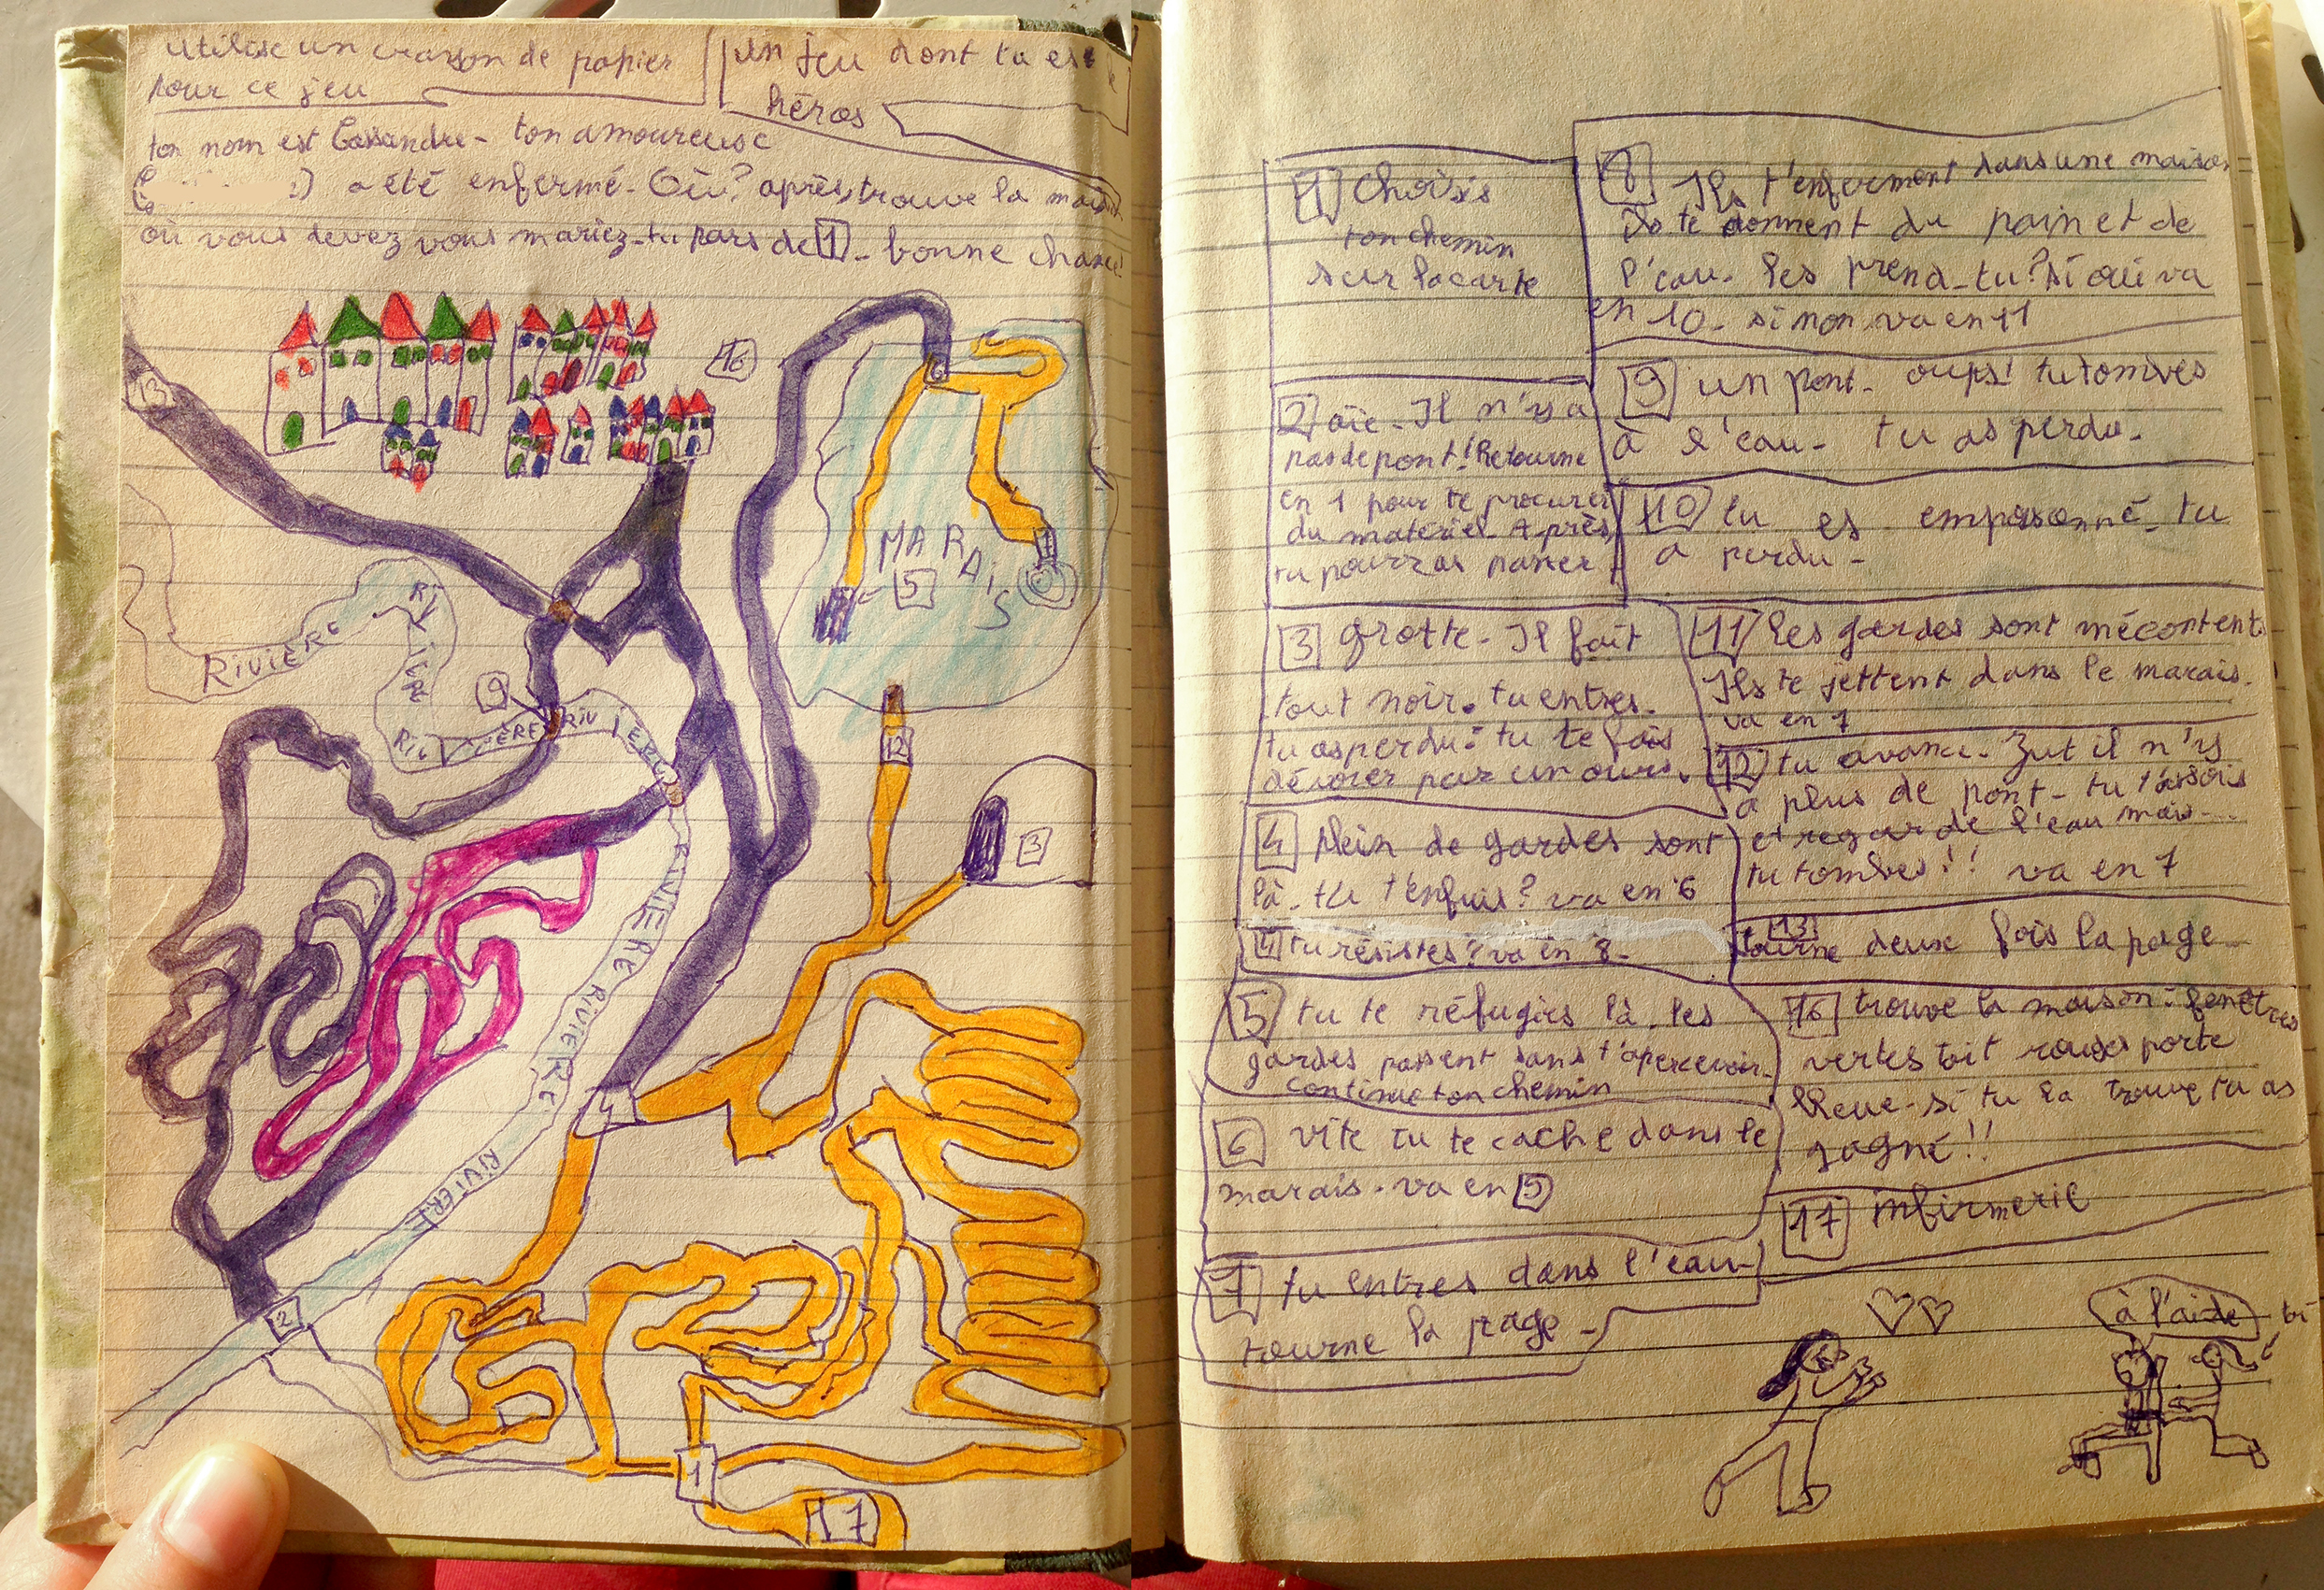 utilise un crayon de papier
pour ce jeu
un jeu dont tu es le
héros
ton nom est Cassandre - ton amoureuse
a été enfermé - Où? après, trouve la maison
où vous devez vous mariez - tu pars de 1 - bonne chance!
13
16
6
MARAiS
5
7
RiVIÈRE
RiVIÈRE
9
RiVIÈRE
RIVIÈRE
12
3
RIVIERE
RIVIERE
RIVIERE
RIVIERE
4
2
1
17
1 choisis
ton chemin
sur la carte
2 aïe - Il n'y a
pas de pont! Retourne
en 1 pour te procurer
du matériel. Après,
tu pourras passer
3 grotte - Il fait
tout noir. tu entres.
tu as perdu : tu te fais
dévorer par un ours.
4 plein de gardes sont
là. tu t'enfuis? va en 6
4 tu résistes? va en 8 -
5 tu te réfugies là. les
gardes passent sans t'apercevoir.
continue ton chemin
6 vite tu te cache dans le
marais. va en 5
7 tu entres dans l'eau -
tourne la page -
8 Ils t'enferment dans une maison
Ils te donnent du pain et de
l'eau. les prend-tu? si oui va
en 10 - si non, va en 11
9 un pont - oups! tu tombes
à l'eau - tu as perdu -
10 tu es empoisonné - tu
a perdu -
11 Les gardes sont mécontents
Ils te jettent dans le marais.
va en 7
12 tu avance - Zut il n'y
a plus de pont - tu t'assois
et regarde l'eau mais...
tu tombes!! va en 7
13
tourne deux fois la page
16 trouve la maison : fenêtres
vertes toit rouges porte
bleue - si tu la trouve tu as
gagné!!
17 infirmerie
à l'aide